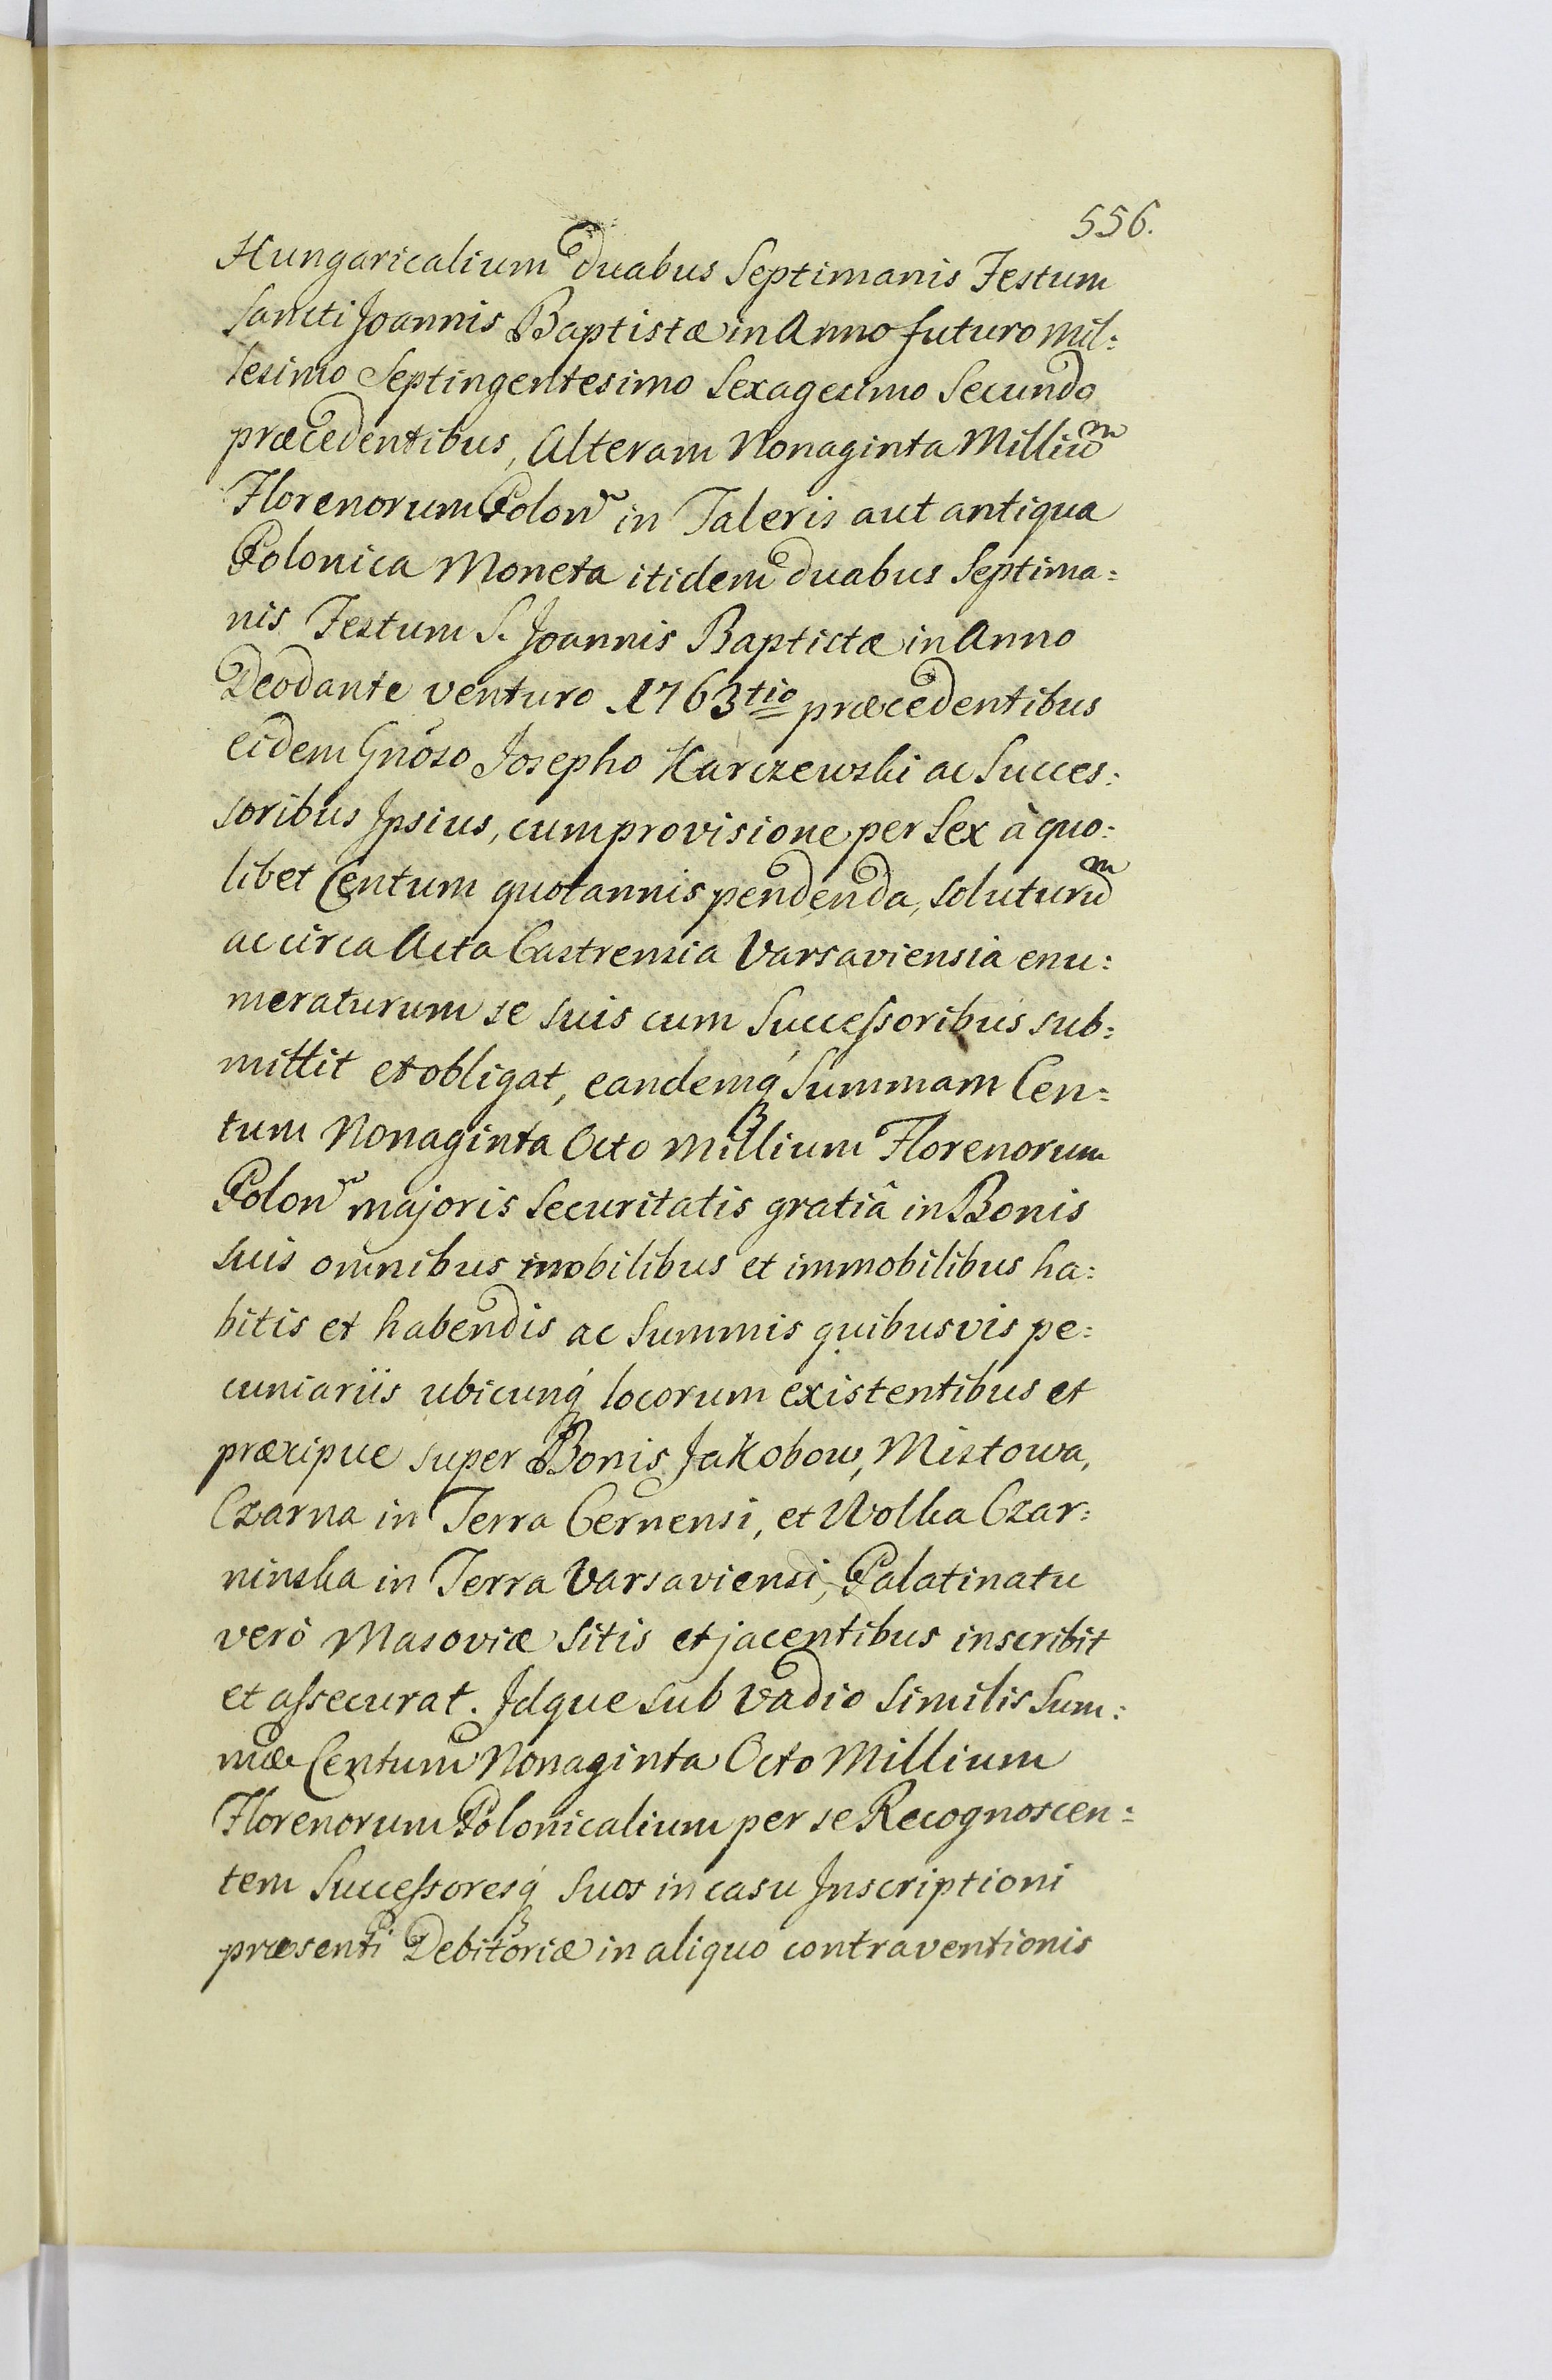 556.
Hungaricalium duabus Septimanis Festum
Sancti Joannis Baptistæ in Anno futuro Mil:
lesimo Septingentesimo Sexagesimo Secundo
præcedentibus, Alteram Nonaginta Millium
Florenorum Polon̄ in Taleris aut antiqua
Polonica Moneta itidem duabus Septima:
nis Festum S. Joannis Baptistæ in Anno
Deodante venturo 1763tio præcedentibus
eidem Gnoso Josepho Karczewski ac Succes:
soribus Ipsius, cum provisione per Sex à quo:
libet Centum quotannis pendenda, soluturum
ac circa Acta Castrensia Varsaviensia enu:
meraturum se suis cum Successoribus sub:
mittit et obligat, eandemq́ Summam Cen:
tum Nonaginta Octo Millium Florenorum
Polon̄ majoris Securitatis gratiâ in Bonis
suis omnibus mobilibus et immobilibus ha:
bitis et habendis ac Summis quibusvis pe:
cuniariis ubicunq́ locorum existentibus et
præcipue super Bonis Jakobow, Mistowa,
Czarna in Terra Cernensi, et Wolka Czar:
ninska in Terra Varsaviensi, Palatinatu
verò Masoviæ Sitis et jacentibus inscribit
et assecurat. Idque sub Vadio Similis Sum:
mæ Centum Nonaginta Octo Millium
Florenorum Polonicalium per se Recognoscen:
tem Successoresq́ Suos in casu Inscriptioni
præsenti Debitoriæ in aliquo contraventionis